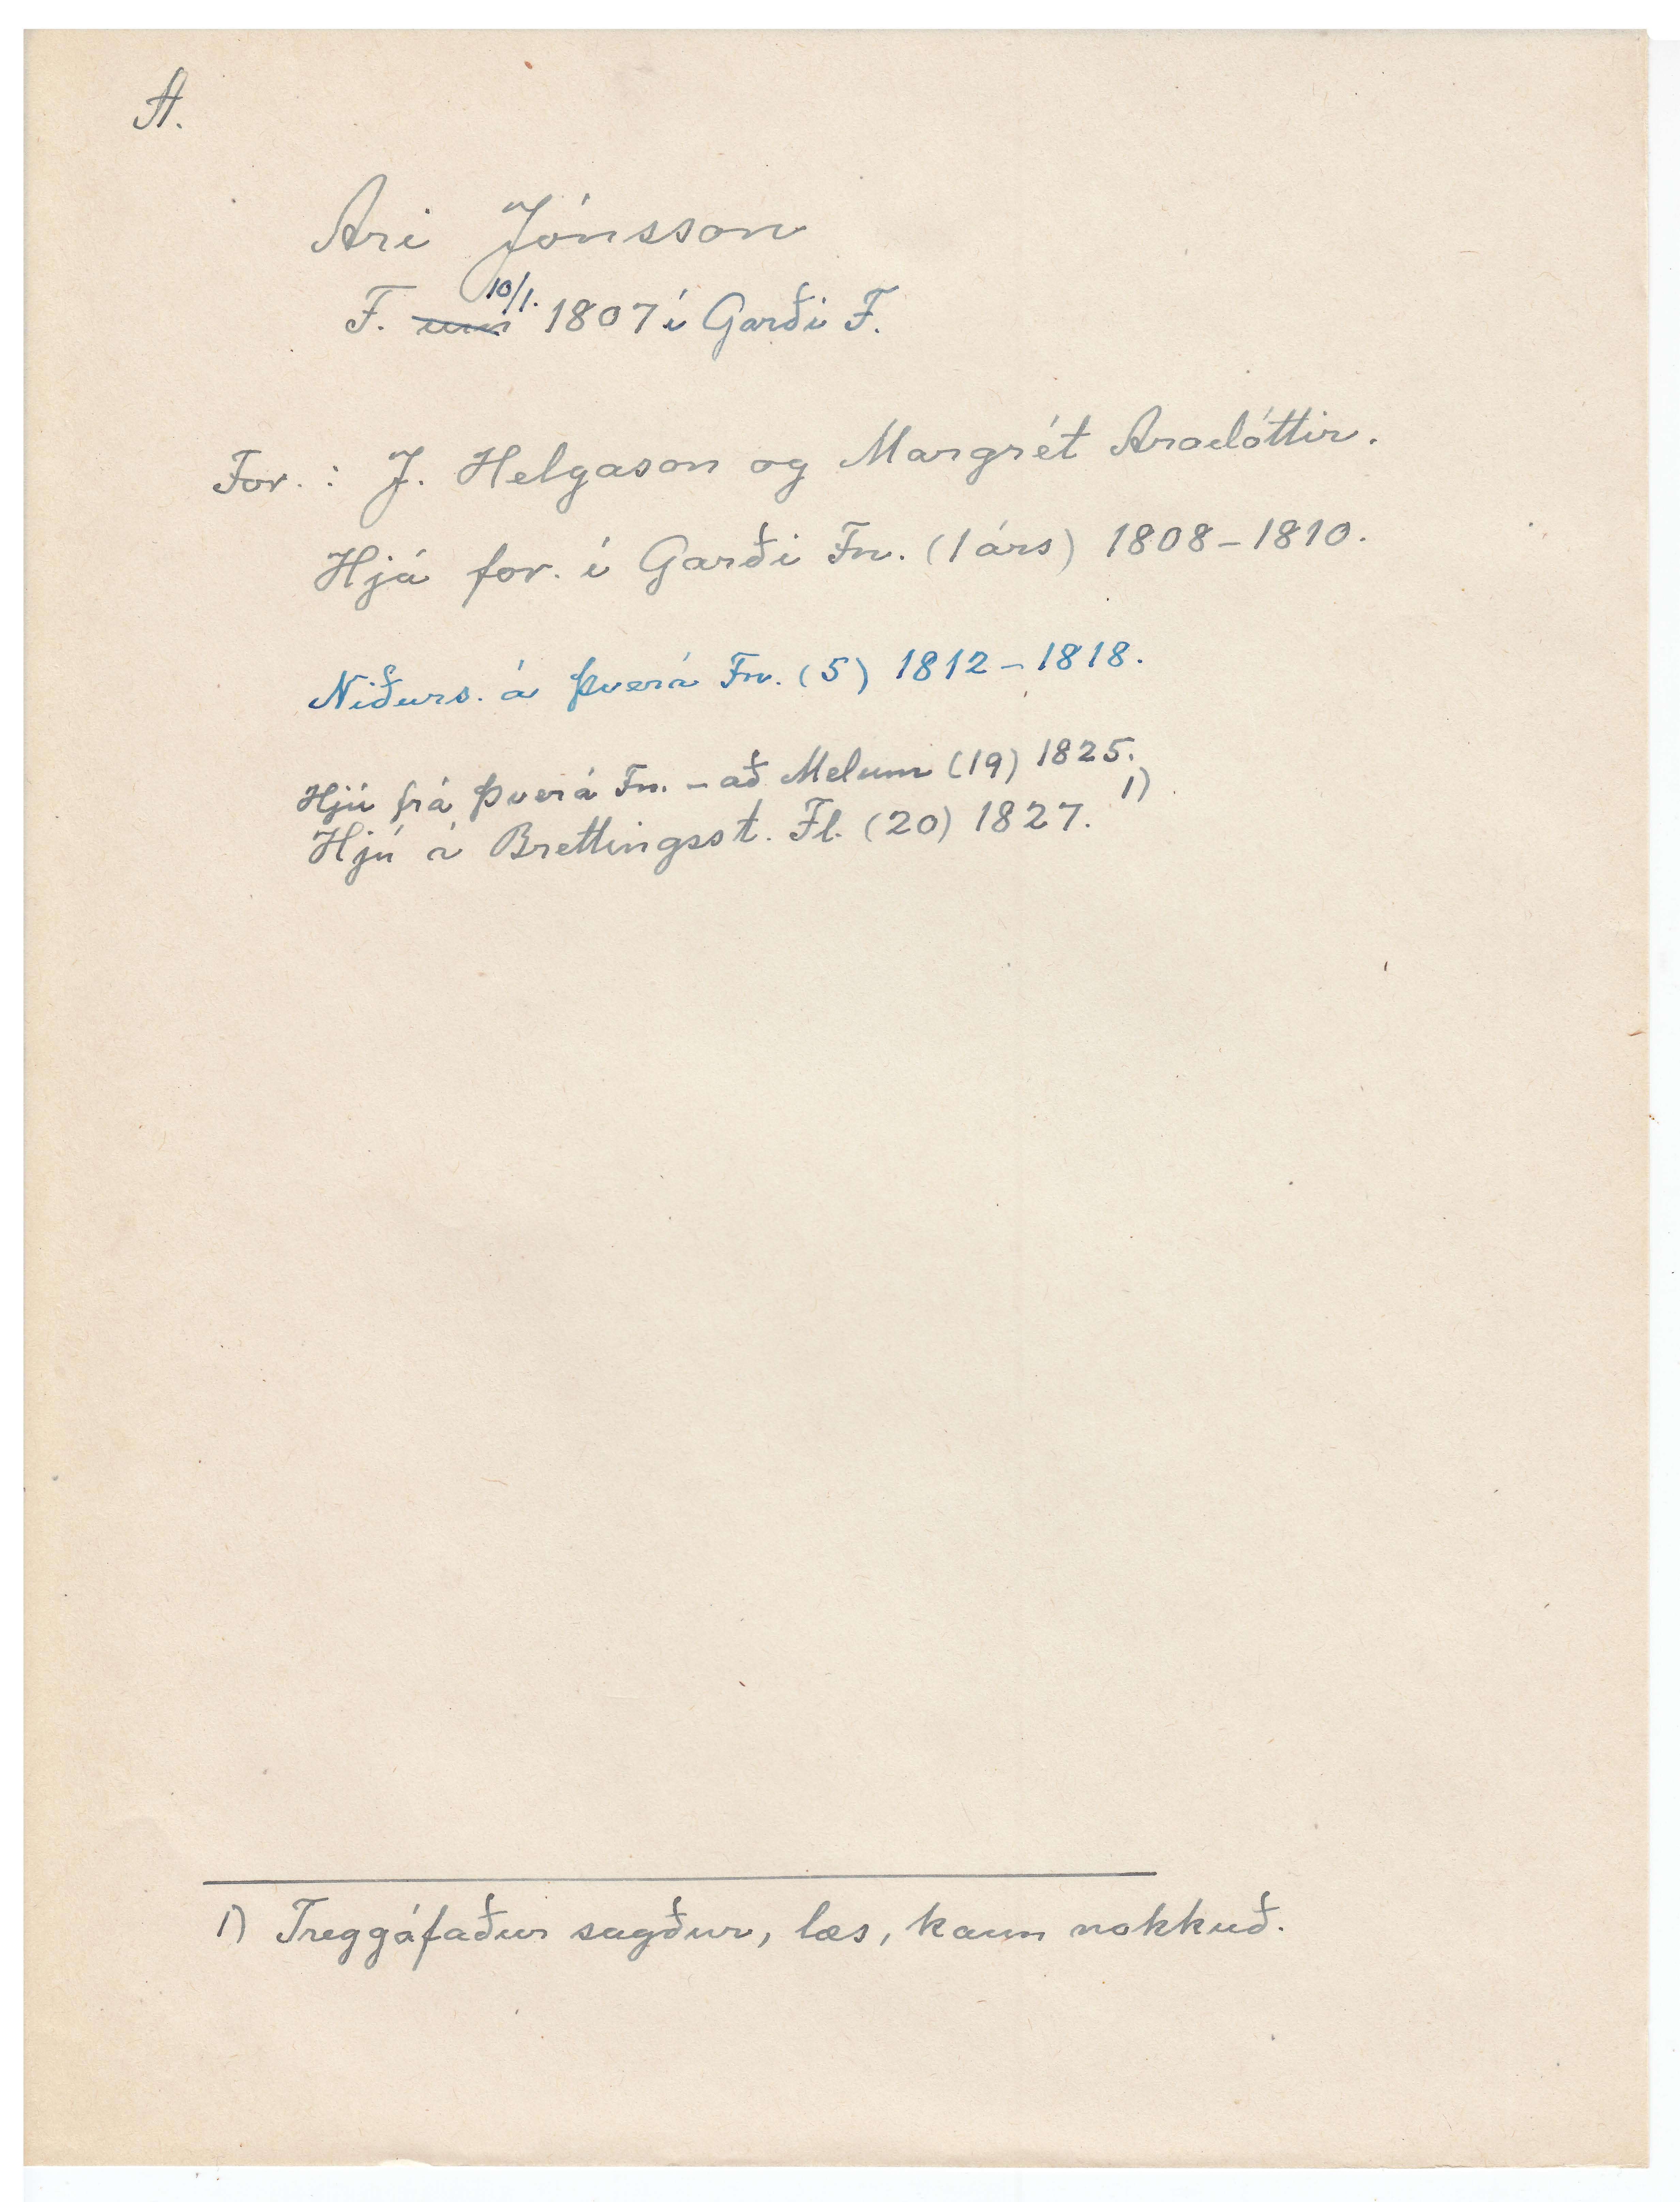 A.
Ari Jónsson
F. um 10/1. 1807 í Garði F.
For.: J. Helgason og Margrét Aradóttir.
Hjá for. í Garði Fn. (1 árs) 1808-1810.
Niðurs. á Þverá Fn. (5) 1812-1818.
Hjú frá Þverá Fn. - að Melum (19) 1825.
Hjú á Brettingsst. Fl. (20) 1827. 1)
1) Treggáfaður sagður, læs, kann nokkuð.